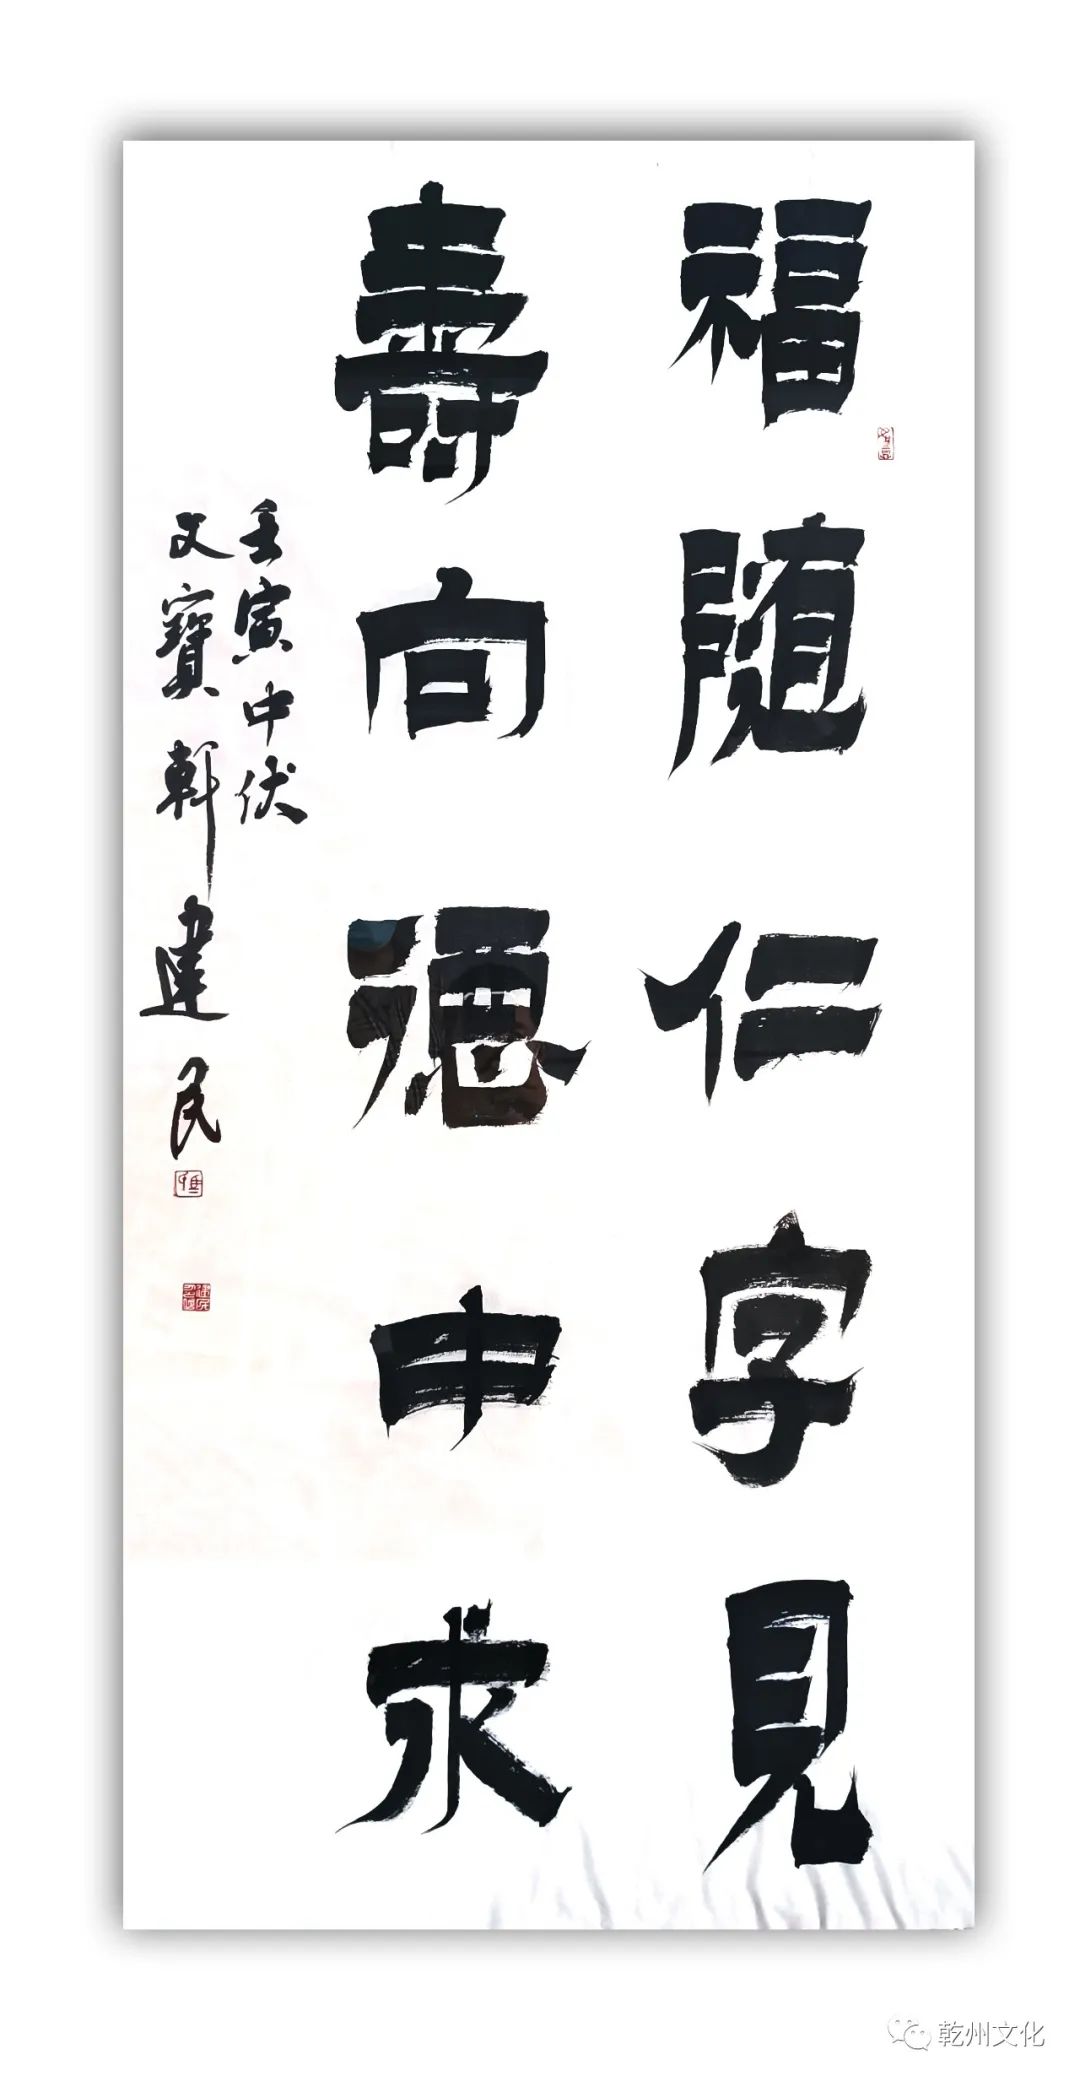 福随仁字見
壽向德中求
壬寅中伏
文寶軒建民
乾州文化